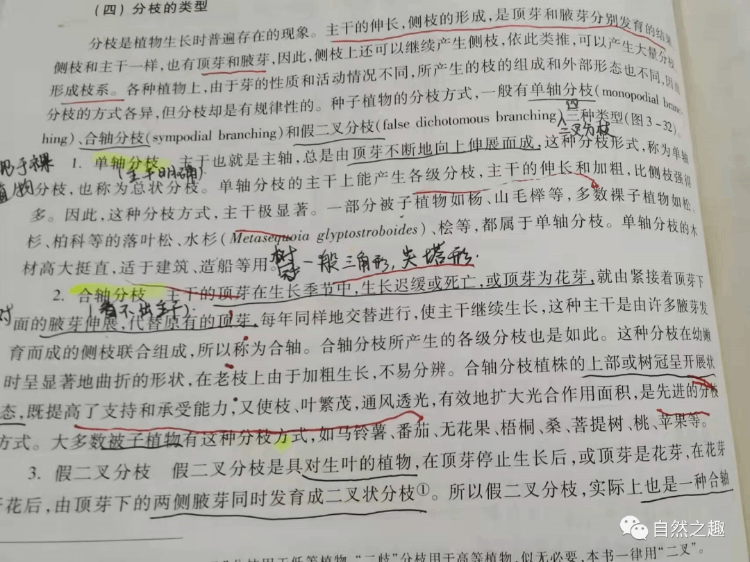 (四) 分枝的类型
分枝是植物生长时普遍存在的现象。主干的伸长,侧枝的形成,是顶芽和腋芽分别发育的结果
侧枝和主干一样,也有顶芽和腋芽,因此,侧枝上还可以继续产生侧枝,依此类推,可以产生大量分枝
形成枝系。各种植物上,由于芽的性质和活动情况不同,所产生的枝的组成和外部形态也不同,因而
分枝的方式各异,但分枝却是有规律性的。种子植物的分枝方式,一般有单轴分枝(monopodial branc-
四
hing)、合轴分枝(sympodial branching)和假二叉分枝(false dichotomous branching)三种类型(图3-32)。
二叉分枝
1. 单轴分枝 主干也就是主轴,总是由顶芽不断地向上伸展而成,这种分枝形式,称为单轴
(主干明确)
分枝,也称为总状分枝。单轴分枝的主干上能产生各级分枝,主干的伸长和加粗,比侧枝强得
多。因此,这种分枝方式,主干极显著。一部分被子植物如杨、山毛榉等,多数裸子植物如松、
杉、柏科等的落叶松、水杉(Metasequoia glyptostroboides)、桧等,都属于单轴分枝。单轴分枝的木
材高大挺直,适于建筑、造船等用。
一般三角形,尖塔形.
2. 合轴分枝 主干的顶芽在生长季节中,生长迟缓或死亡,或顶芽为花芽,就由紧接着顶芽下
(看不出主干)
面的腋芽伸展,代替原有的顶芽,每年同样地交替进行,使主干继续生长,这种主干是由许多腋芽发
育而成的侧枝联合组成,所以称为合轴。合轴分枝所产生的各级分枝也是如此。这种分枝在幼嫩
时呈显著地曲折的形状,在老枝上由于加粗生长,不易分辨。合轴分枝植株的上部或树冠呈开展状
态,既提高了支持和承受能力,又使枝、叶繁茂,通风透光,有效地扩大光合作用面积,是先进的分枝
方式。大多数被子植物有这种分枝方式,如马铃薯、番茄、无花果、梧桐、桑、菩提树、桃、苹果等。
3. 假二叉分枝 假二叉分枝是具对生叶的植物,在顶芽停止生长后,或顶芽是花芽,在花芽
开花后,由顶芽下的两侧腋芽同时发育成二叉状分枝①。所以假二叉分枝,实际上也是一种合轴
分枝用于低等植物,“二歧”分枝用于高等植物,似无必要,本书一律用“二叉”。
自然之趣